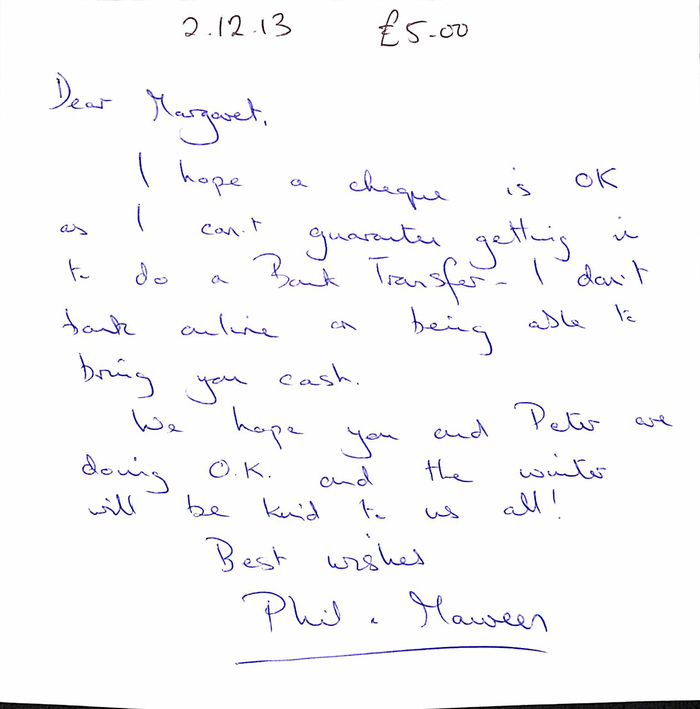 2.12.13 £5-00
Dear Margaret,
I hope a cheque is OK
as I can't guarantee getting in
to do a Bank Transfer - I don't
bank online or being able to
bring you cash.
We hope you and Peter are
doing O.K. and the winter
will be kind to us all!
Best wishes
Phil & Maureen